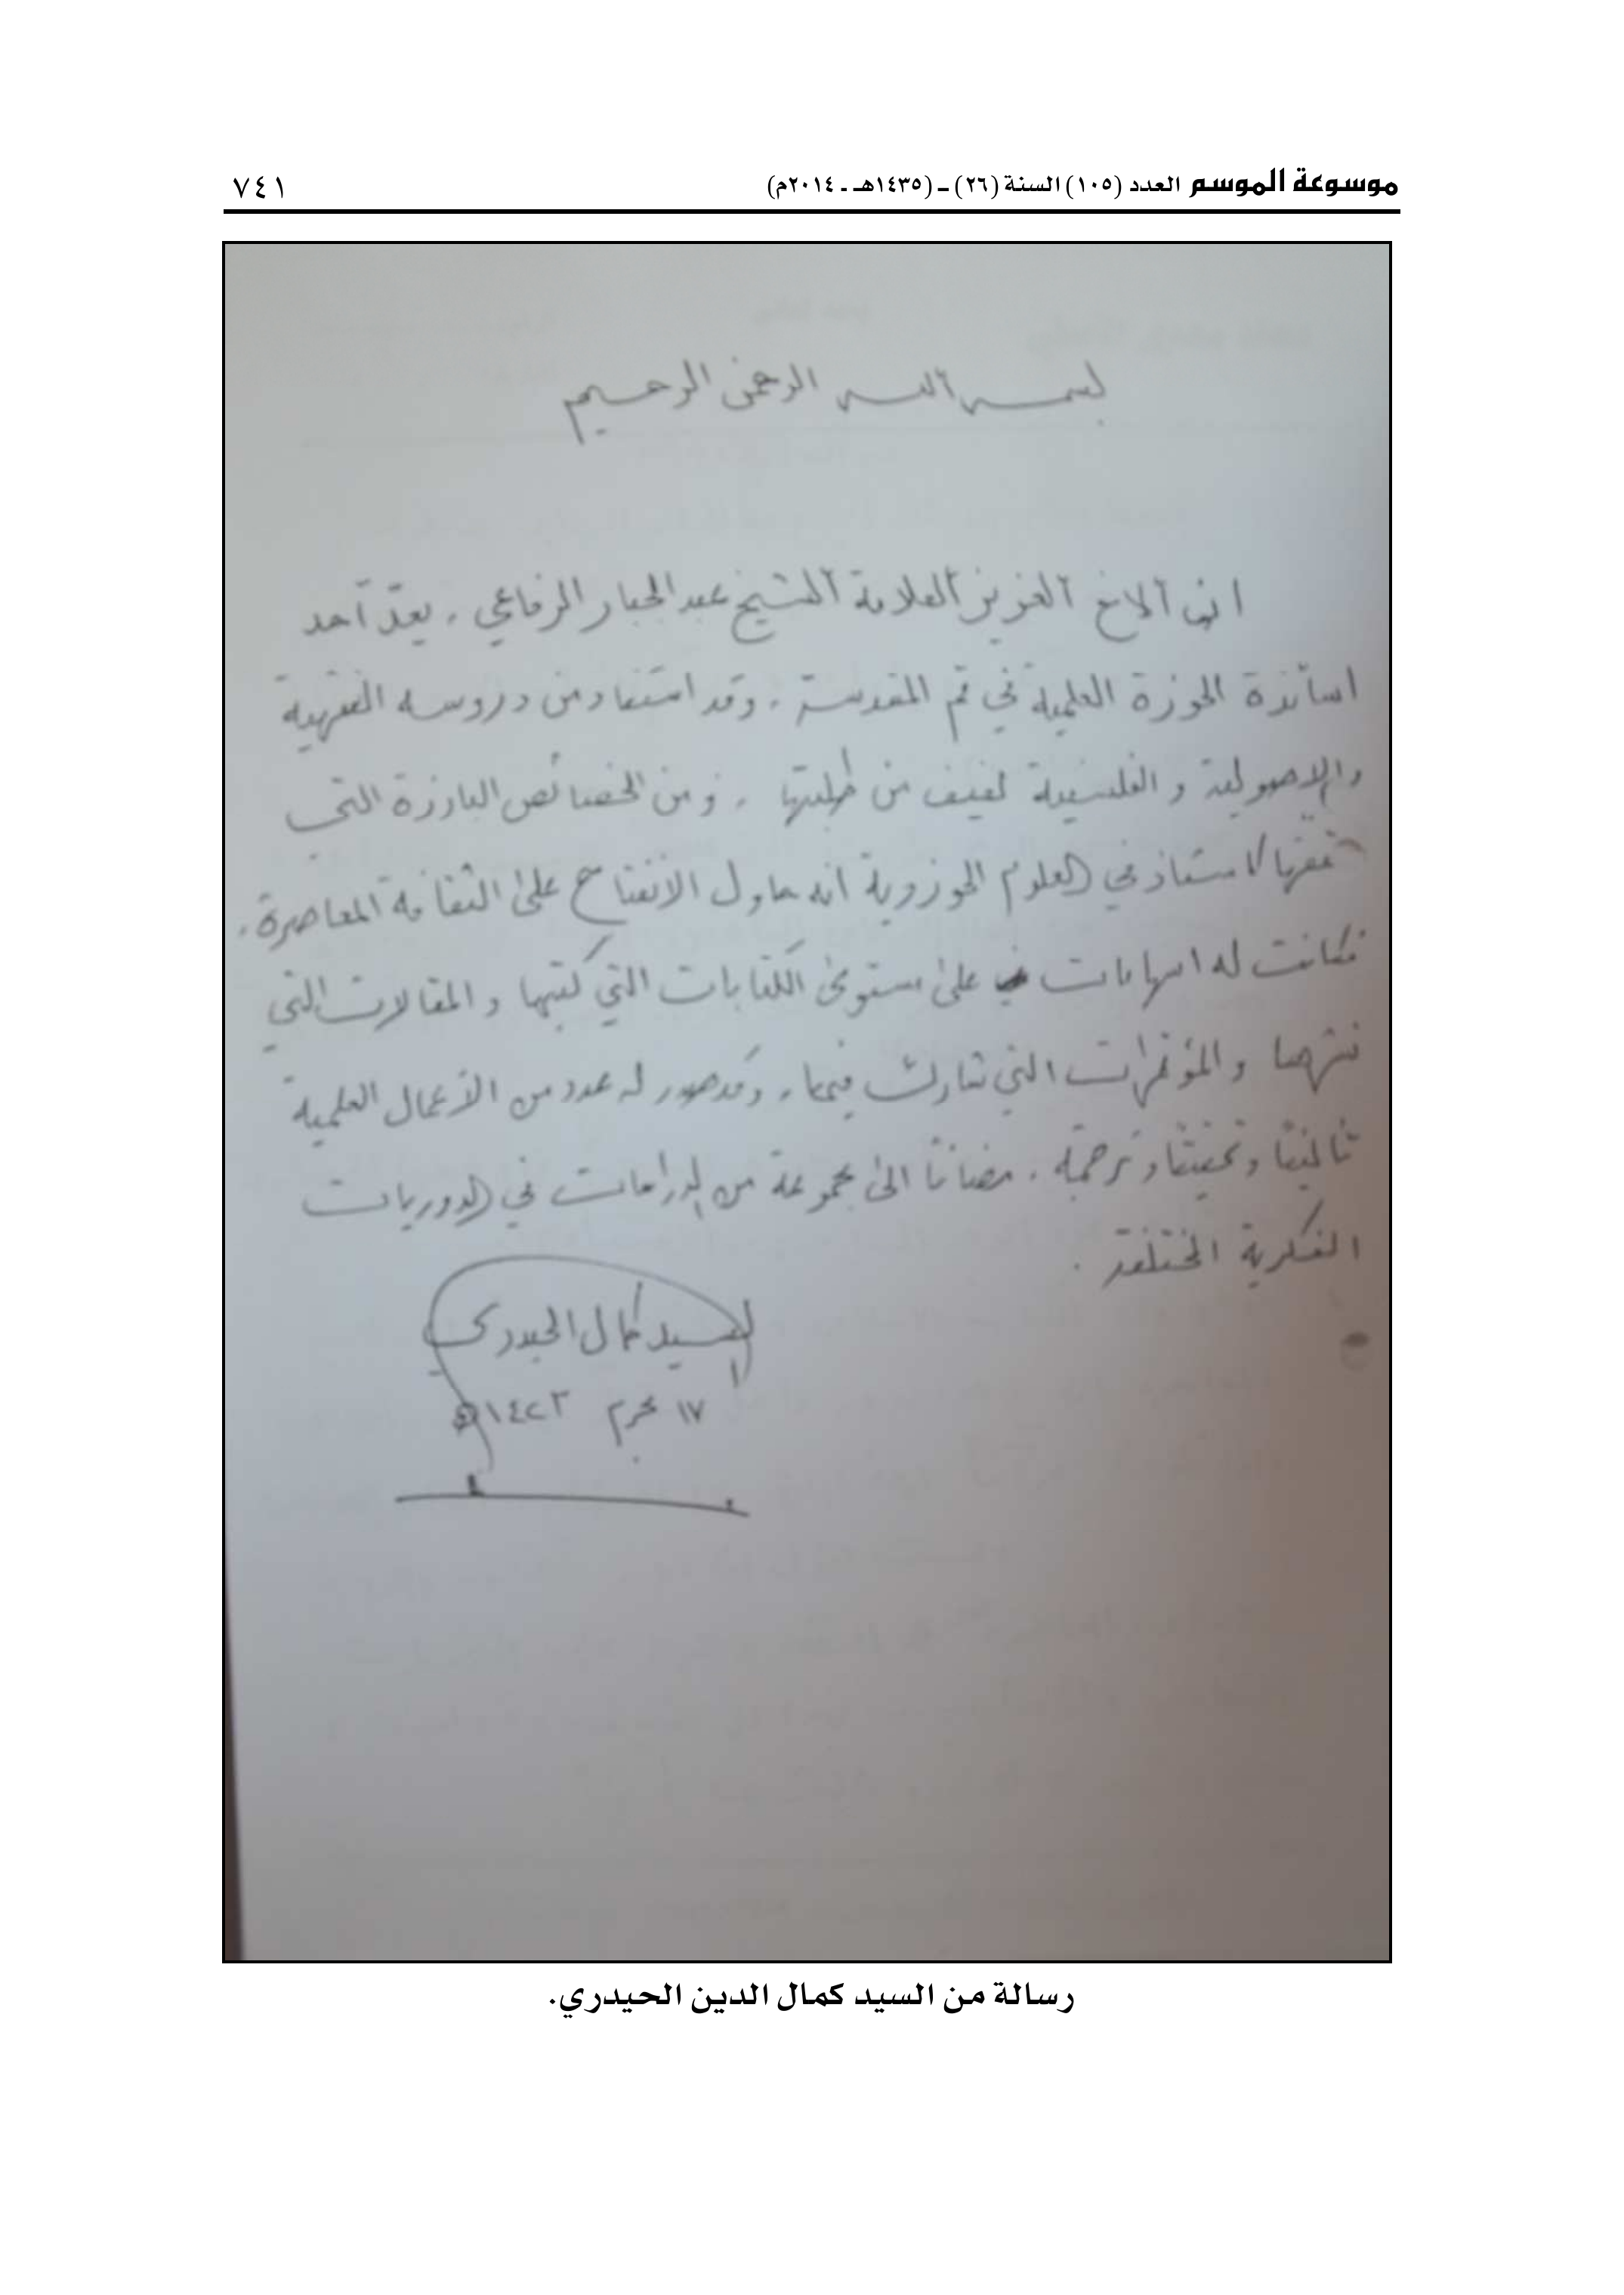 موسوعة الموسم العدد (١٠٥) السنة (٢٦) ـ (١٤٣٥هـ ـ ٢٠١٤م)
٧٤١
بسم الله الرحمن الرحيم
ان الاخ العزيز العلامة الشيخ عبد الجبار الرفاعي، يعدّ أحد
اساتذة الحوزة العلمية في قم المقدسة، وقد استفاد من دروسه الفقهية
والاصولية والفلسفية لفيف من طلبتها، ومن الخصائص البارزة التي
كاستاذ في العلوم الحوزوية انه حاول الانفتاح على الثقافة المعاصرة،
فكانت له اسهامات على مستوى الكتابات التي كتبها والمقالات التي
نشرها والمؤتمرات التي شارك فيها، وقد صدر له عدد من الأعمال العلمية
تأليفاً وتحقيقاً وترجمة، مضافاً الى مجموعة من الدراسات في الدوريات
الفكرية المختلفة.
السيد كمال الحيدري
١٧ محرم ١٤٢٣ هـ
رسالة من السيد كمال الدين الحيدري.